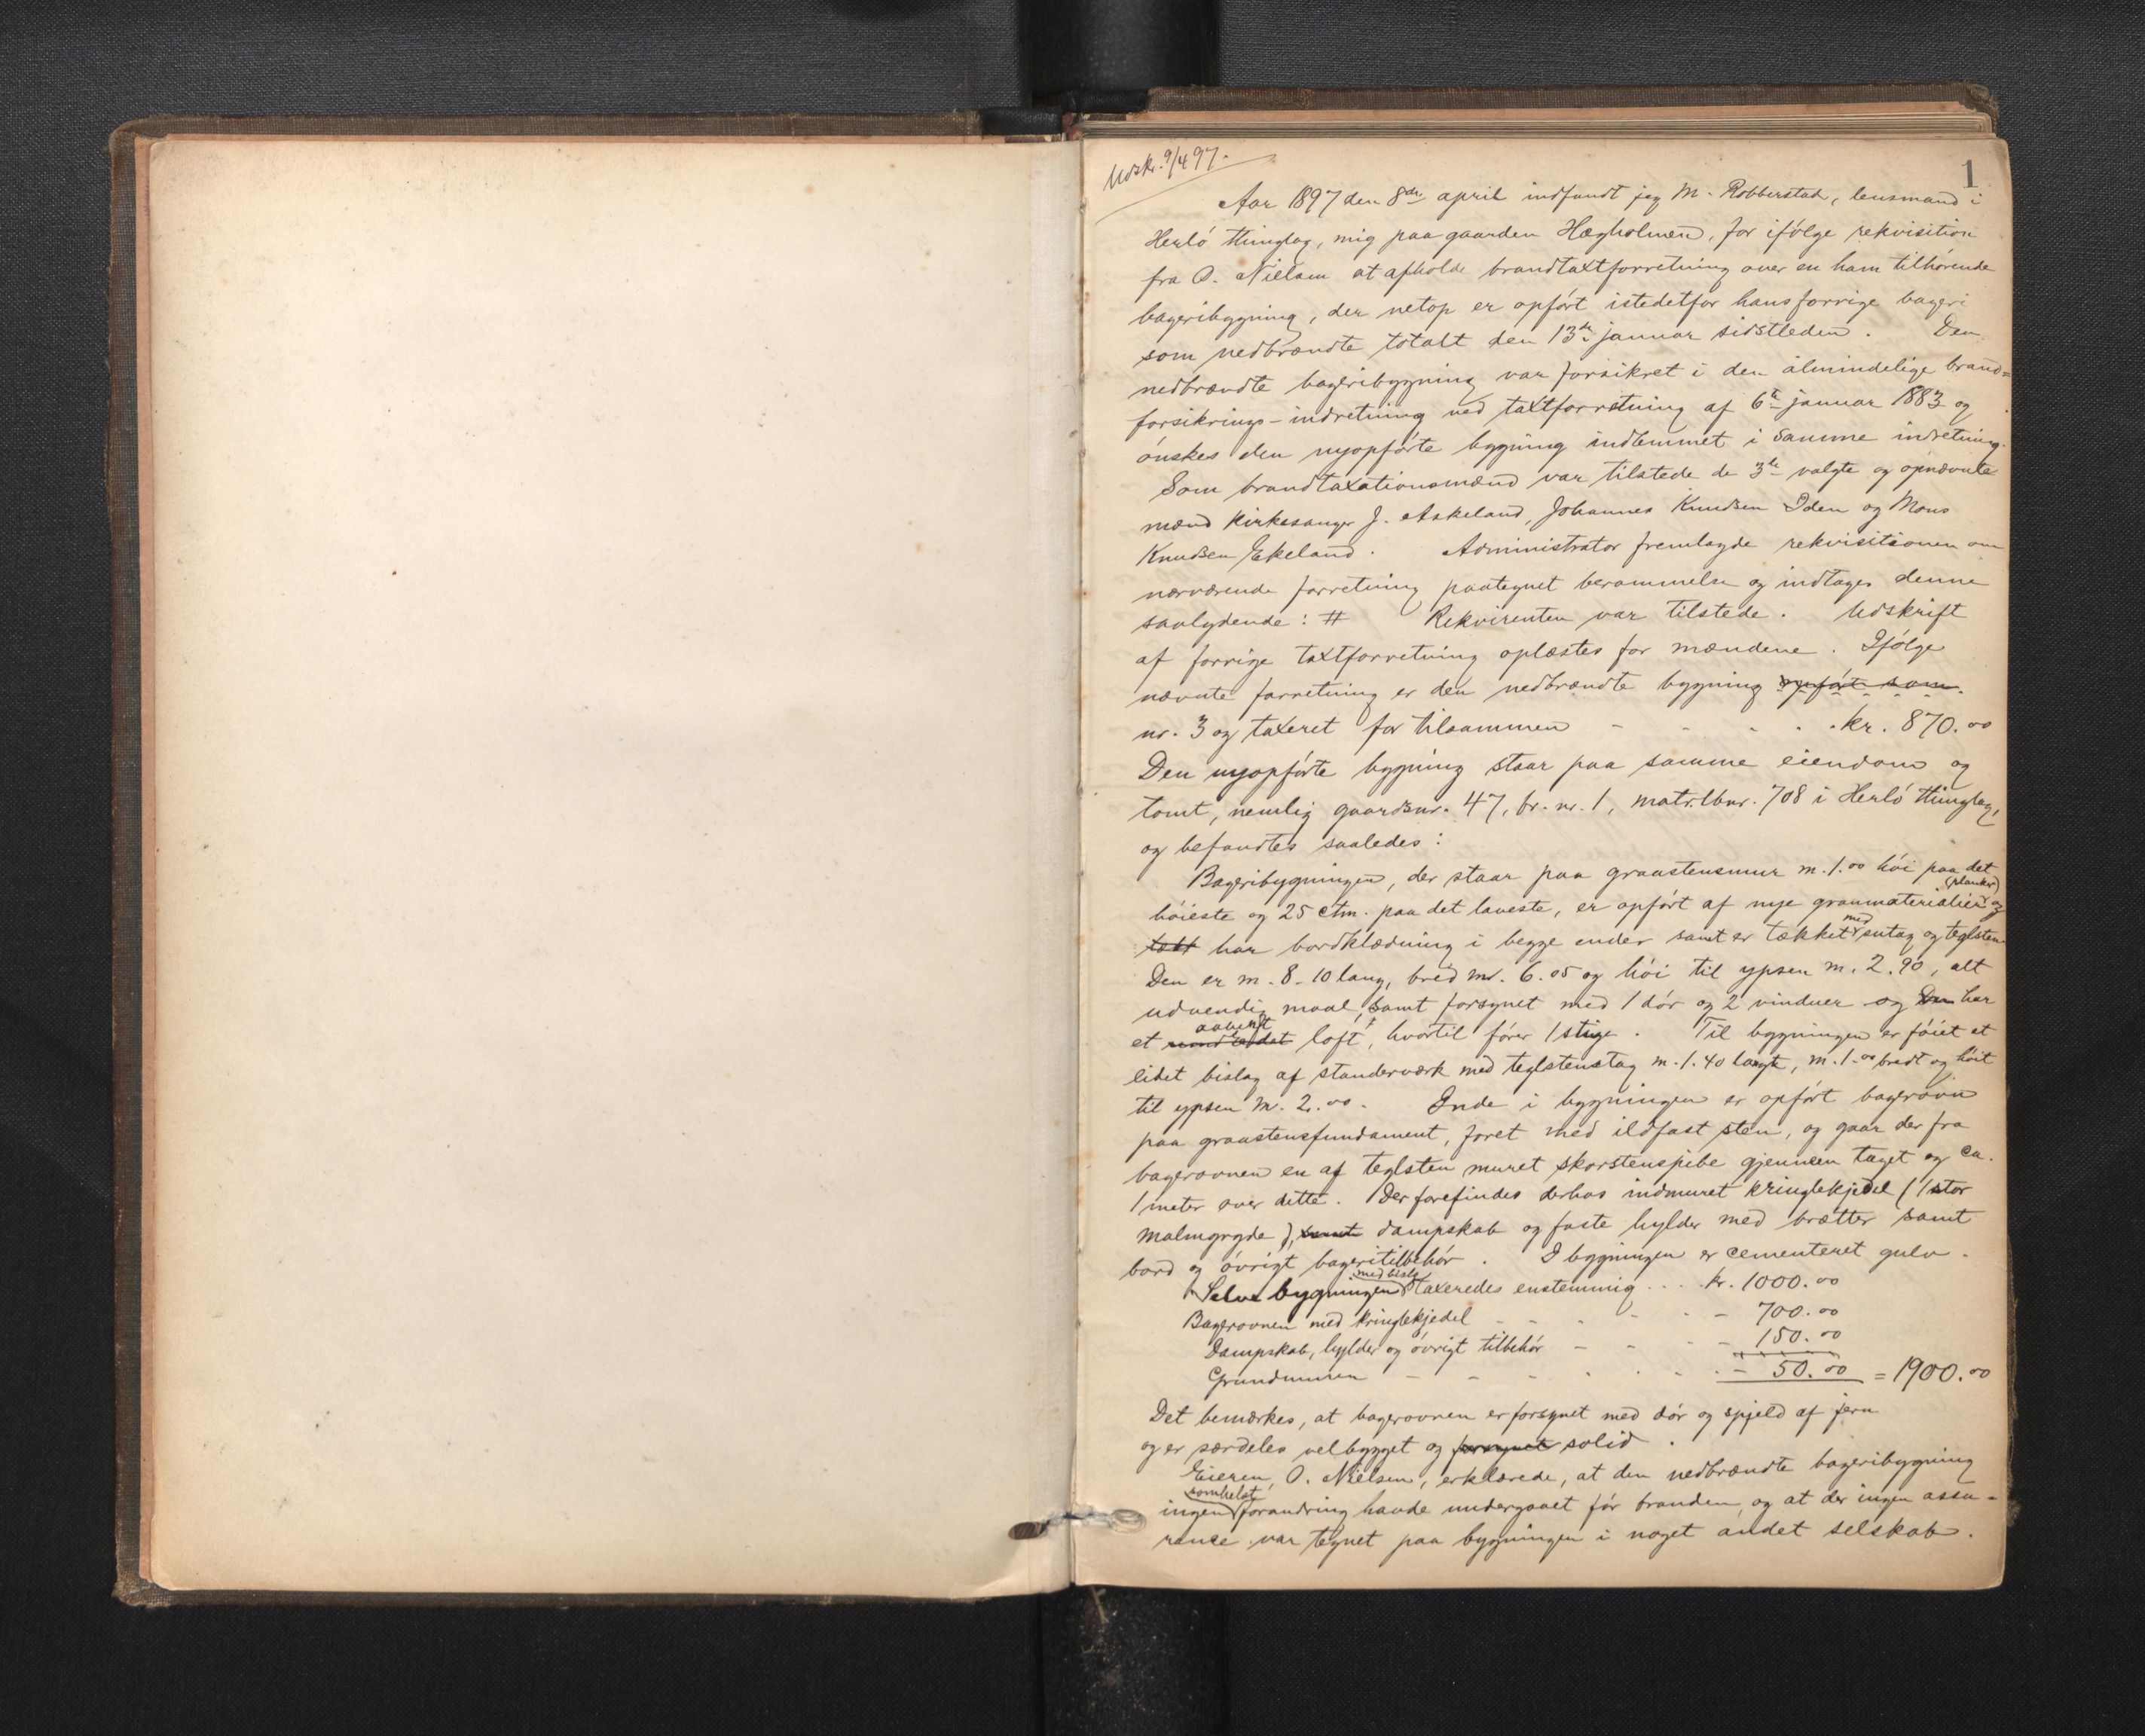 Udskr. 9/4 97.
1
Aar 1897 den 8de april indfandt jeg M. Robberstad, lensmand i
Herló thinglag, mig paa gaarden Hægholmen, for ifólge rekvisition
fra O. Nielsen at afholde brandtaxtforretning over en ham tilhórende
bageribygning, der netop er opfórt istedetfor hans forrige bageri
som nedbrændte totalt den 13de januar sidstleden. Den
nedbrændte bageribygning var forsikret i den almindelige brand=
forsikrings-indretning ved taxtforretning af 6te januar 1883 og
ónskes den nyopfórte bygning indlemmet i samme indretning.
Som brandtaxationsmænd var tilstede de 3de valgte og opnævnte
mænd kirkesanger J. Askeland, Johannes Knudsen Iden og Mons
Knudsen Ekeland. Administrator fremlagde rekvisitionen om
nærværende forretning paategnet berammelse og indtages denne
saalydende: # Rekvirenten var tilstede. Udskrift
af forrige taxtforretning oplæstes for mændene. Ifólge
nævnte forretning er den nedbrændte bygning opfórt som
nr. 3 og taxeret for tilsammen - - - - kr. 870.00
Den nyopfórte bygning staar paa samme eiendom og
tomt, nemlig gaardsnr. 47, br. nr. 1, matr. lbnr. 708 i Herló thinglag,
og befandtes saaledes:
Bageribygningen, der staar paa graastensmur m. 1.00 hói paa det
hóieste og 25 ctm. paa det laveste, er opfórt af nye granmaterialier (planker) og
tætt har bordklædning i begge ender samt er tækket med sutag og teglsten
Den er m. 8.10 lang, bred m. 6.05 og hói til ypsen m. 2.90, alt
udvendig maal, samt forsynet med 1 dór og 2 vinduer og Den har
et aabent loft, hvortil fórer 1 stige. Til bygningen er fóiet et
lidet bislag af standerværk med teglstenstag m. 1.40 langt, m. 1.00 bredt og hóit
til ypsen m. 2.00. Inde i bygningen er opfórt bagerovn
paa graastensfundament, foret med ildfast sten, og gaar der fra
bagerovnen en af teglsten muret skorstenspibe gjennem taget og ca.
1 meter over dette. Der forefindes derhos indmuret kringlekjedel (1 stor
malmgryde), samt dampskab og faste hylder med brætter samt
bord og óvrigt bageritilbehór. I bygningen er cementeret gulv.
Selve bygningen med bislag taxeredes enstemmig . . . kr. 1000.00
Bagerovnen med kringlekjedel - - - - - 700.00
Dampskab, hylder og óvrigt tilbehór - - - - 150.00
Grundmuren - - - - - - 50.00 = 1900.00
Det bemærkes, at bagerovnen er forsynet med dór og spjeld af jern
og er særdeles velbygget og forsynet solid.
Eieren, O. Nielsen, erklærede, at den nedbrændte bageribygning
ingen somhelst forandring havde undergaaet fór branden, og at der ingen assu-
rance var tegnet paa bygningen i noget andet selskab.